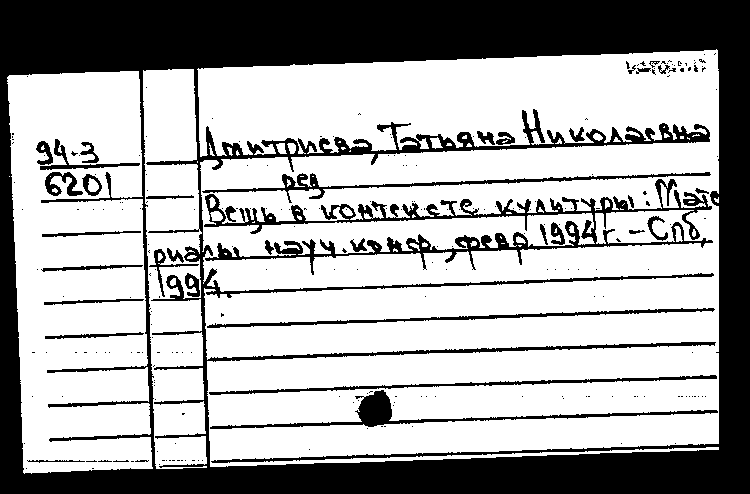 94-3
6201
Дмитриева, Татьяна Николаевна
ред
Вещь в контексте культуры: Мате
риалы науч. конф., февр 1994 г. - Спб,
1994.